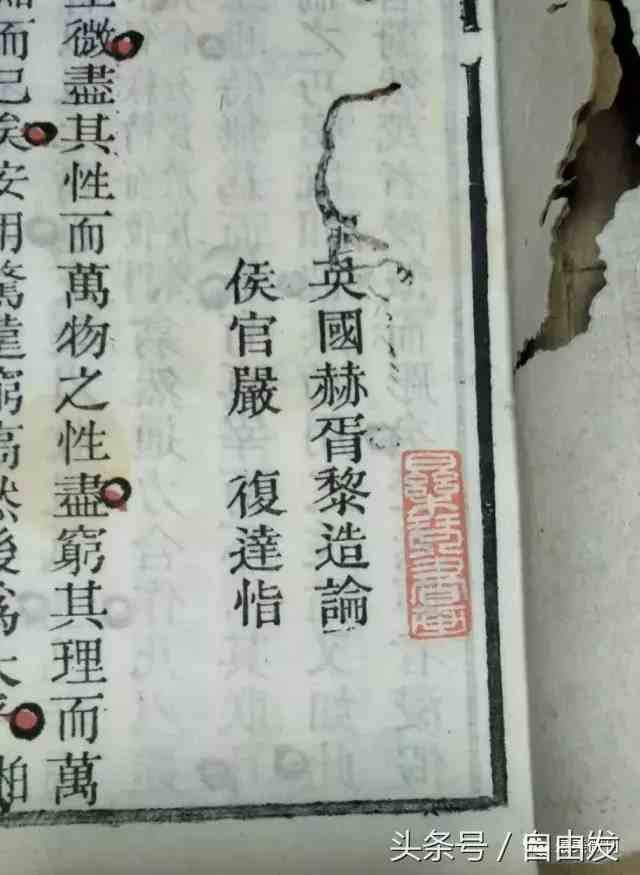 英國赫胥黎造論
侯官嚴 復達恉
微盡其性而萬物之性盡窮其理而萬
而已矣安用騖遠窮高然後為大
头条号 / 自由发